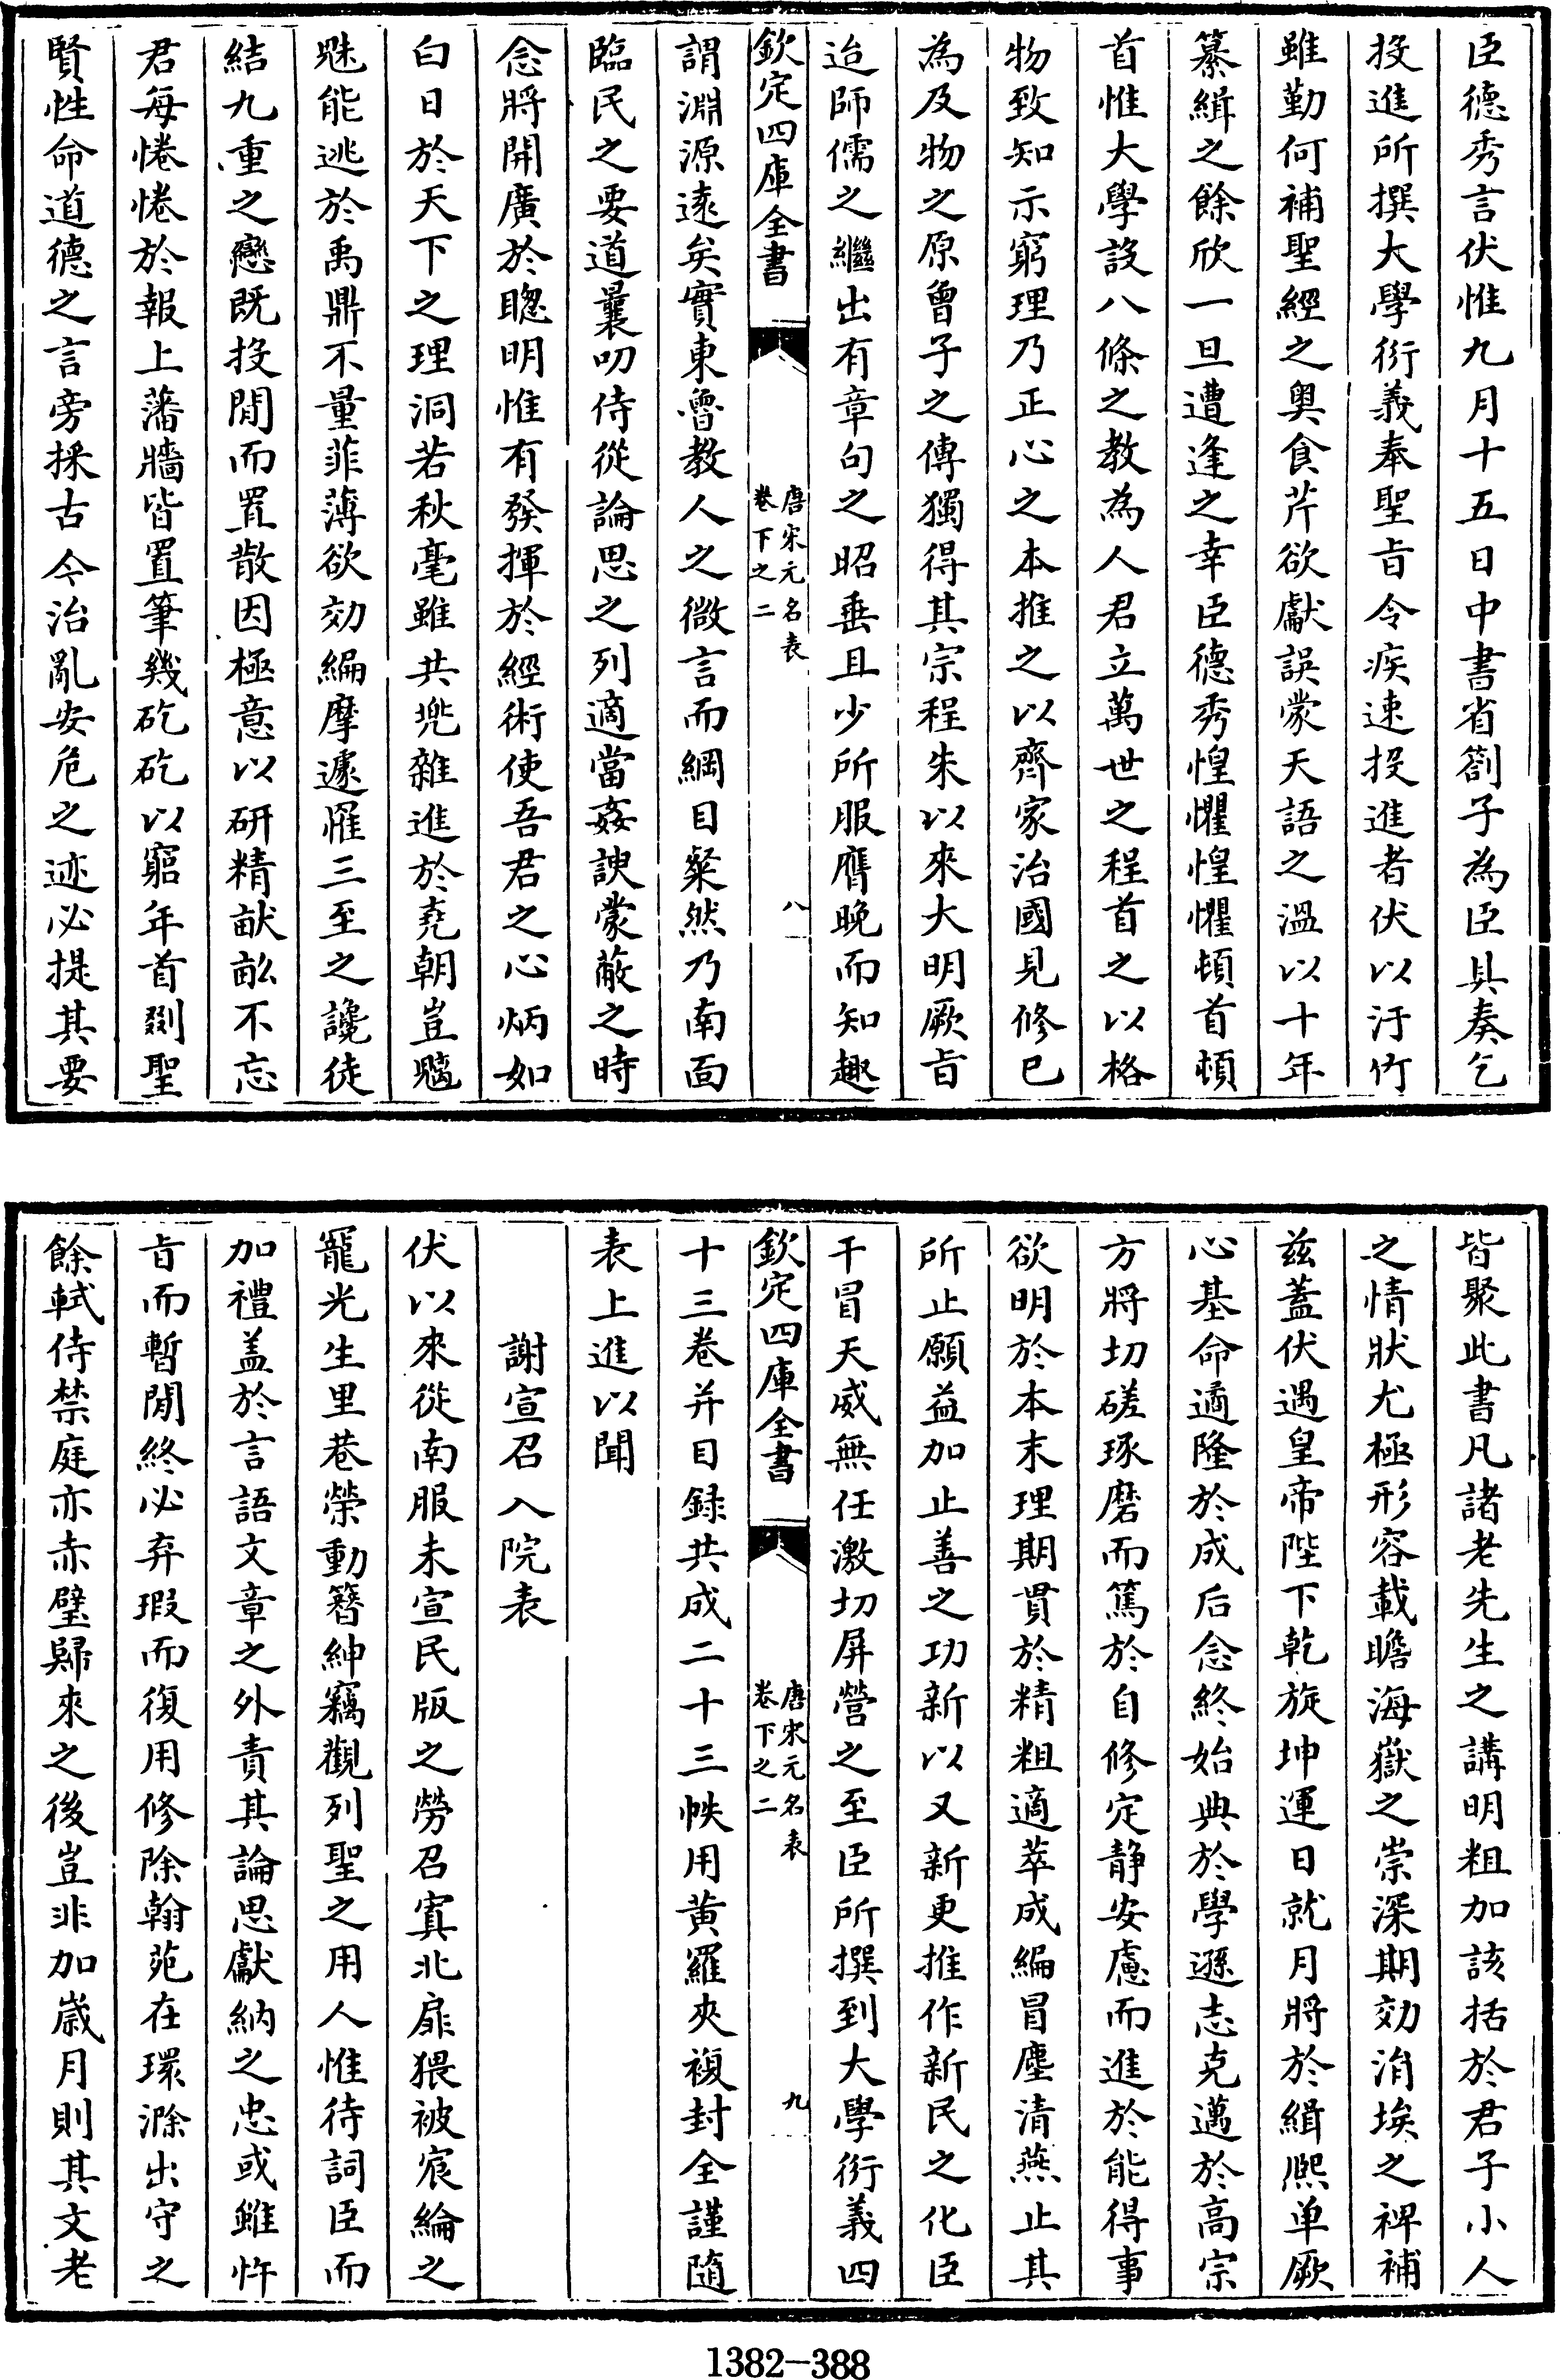 臣德秀言伏惟九月十五日中書省劄子為臣具奏乞
投進所撰大學衍義奉聖旨令疾速投進者伏以汗竹
雖勤何補聖經之奥食芹欲獻誤蒙天語之温以十年
纂緝之餘欣一旦遭逢之幸臣德秀惶懼惶懼頓首頓
首惟大學設八條之教為人君立萬世之程首之以格
物致知示窮理乃正心之本推之以齊家治國見修已
為及物之原曾子之傳獨得其宗程朱以來大明厥旨
迨師儒之繼出有章句之昭垂且少所服膺晚而知趣
欽定四庫全書
唐宋元名表
卷下之二
八
謂淵源逺矣實東魯教人之微言而綱目粲然乃南面
臨民之要道曩叨侍從論思之列適當姦諛蒙蔽之時
念將開廣於聰明惟有發揮於經術使吾君之心炳如
白日於天下之理洞若秋毫雖共兜雜進於堯朝豈魑
魅能逃於禹鼎不量菲薄欲効編摩遽罹三至之讒徒
結九重之戀既投閒而置散因極意以研精畎畝不忘
君每惓惓於報上藩牆皆置筆幾矻矻以窮年首剟聖
賢性命道德之言旁採古今治亂安危之迹必提其要
皆聚此書凡諸老先生之講明粗加該括於君子小人
之情狀尤極形容載瞻海嶽之崇深期効涓埃之裨補
兹蓋伏遇皇帝陛下乾旋坤運日就月將於緝熙单厥
心基命遹隆於成后念終始典於學遜志克邁於高宗
方將切磋琢磨而篤於自修定静安慮而進於能得事
欲明於本末理期貫於精粗適萃成編冒塵清燕止其
所止願益加止善之功新以又新更推作新民之化臣
干冒天威無任激切屏營之至臣所撰到大學衍義四
欽定四庫全書
唐宋元名表
卷下之二
九
十三卷并目録共成二十三帙用黄羅夾複封全謹隨
表上進以聞
謝宣召入院表
伏以來從南服未宣民版之勞召寘北扉猥被宸綸之
寵光生里巷榮動簪紳竊觀列聖之用人惟待詞臣而
加禮盖於言語文章之外責其論思獻納之忠或雖忤
旨而暫閒終必弃瑕而復用修除翰苑在環滁出守之
餘軾侍禁庭亦赤壁歸來之後豈非加嵗月則其文老
1382-388